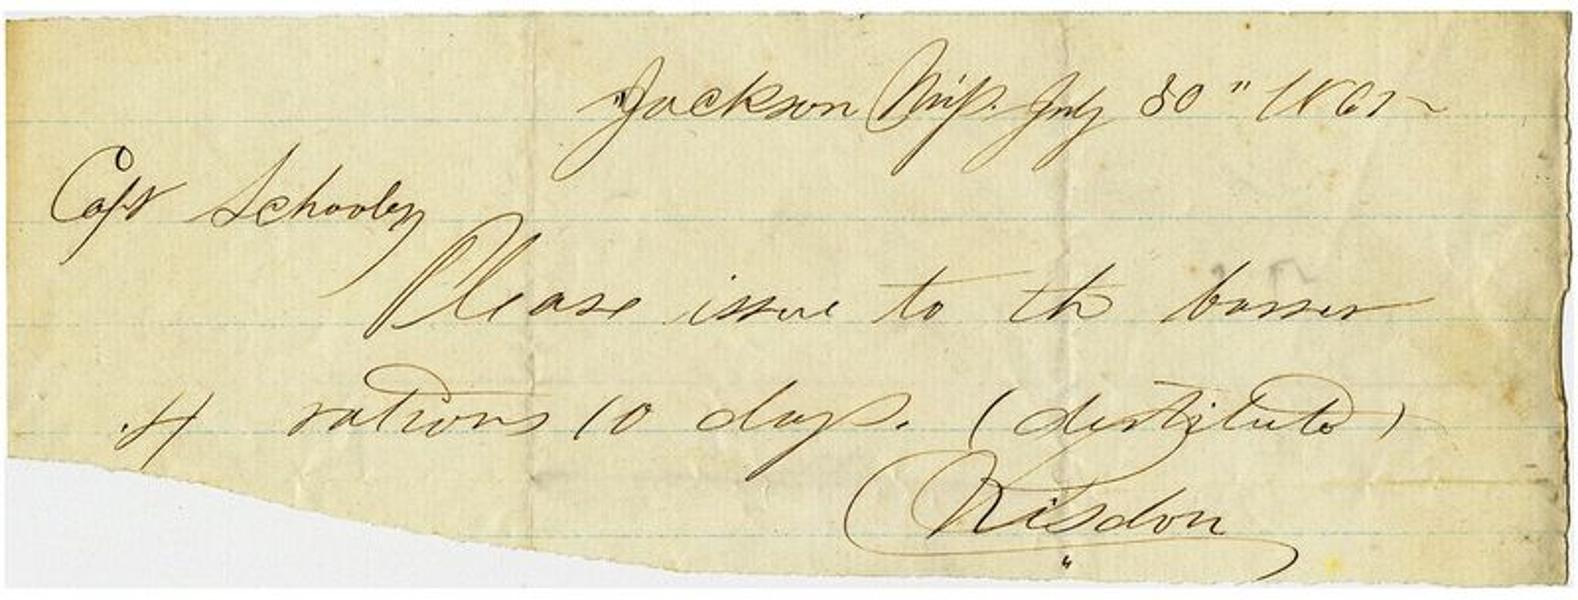 Jackson Miss. July 30" 1865
Capt Schooley
Please issue to the bearer
4 rations 10 days. (destitute)
Risdon